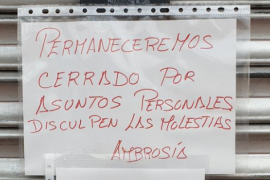 PERMANECEREMOS
CERRADO POR
ASUNTOS PERSONALES
DISCULPEN LAS MOLESTIAS
AMBROSÍA